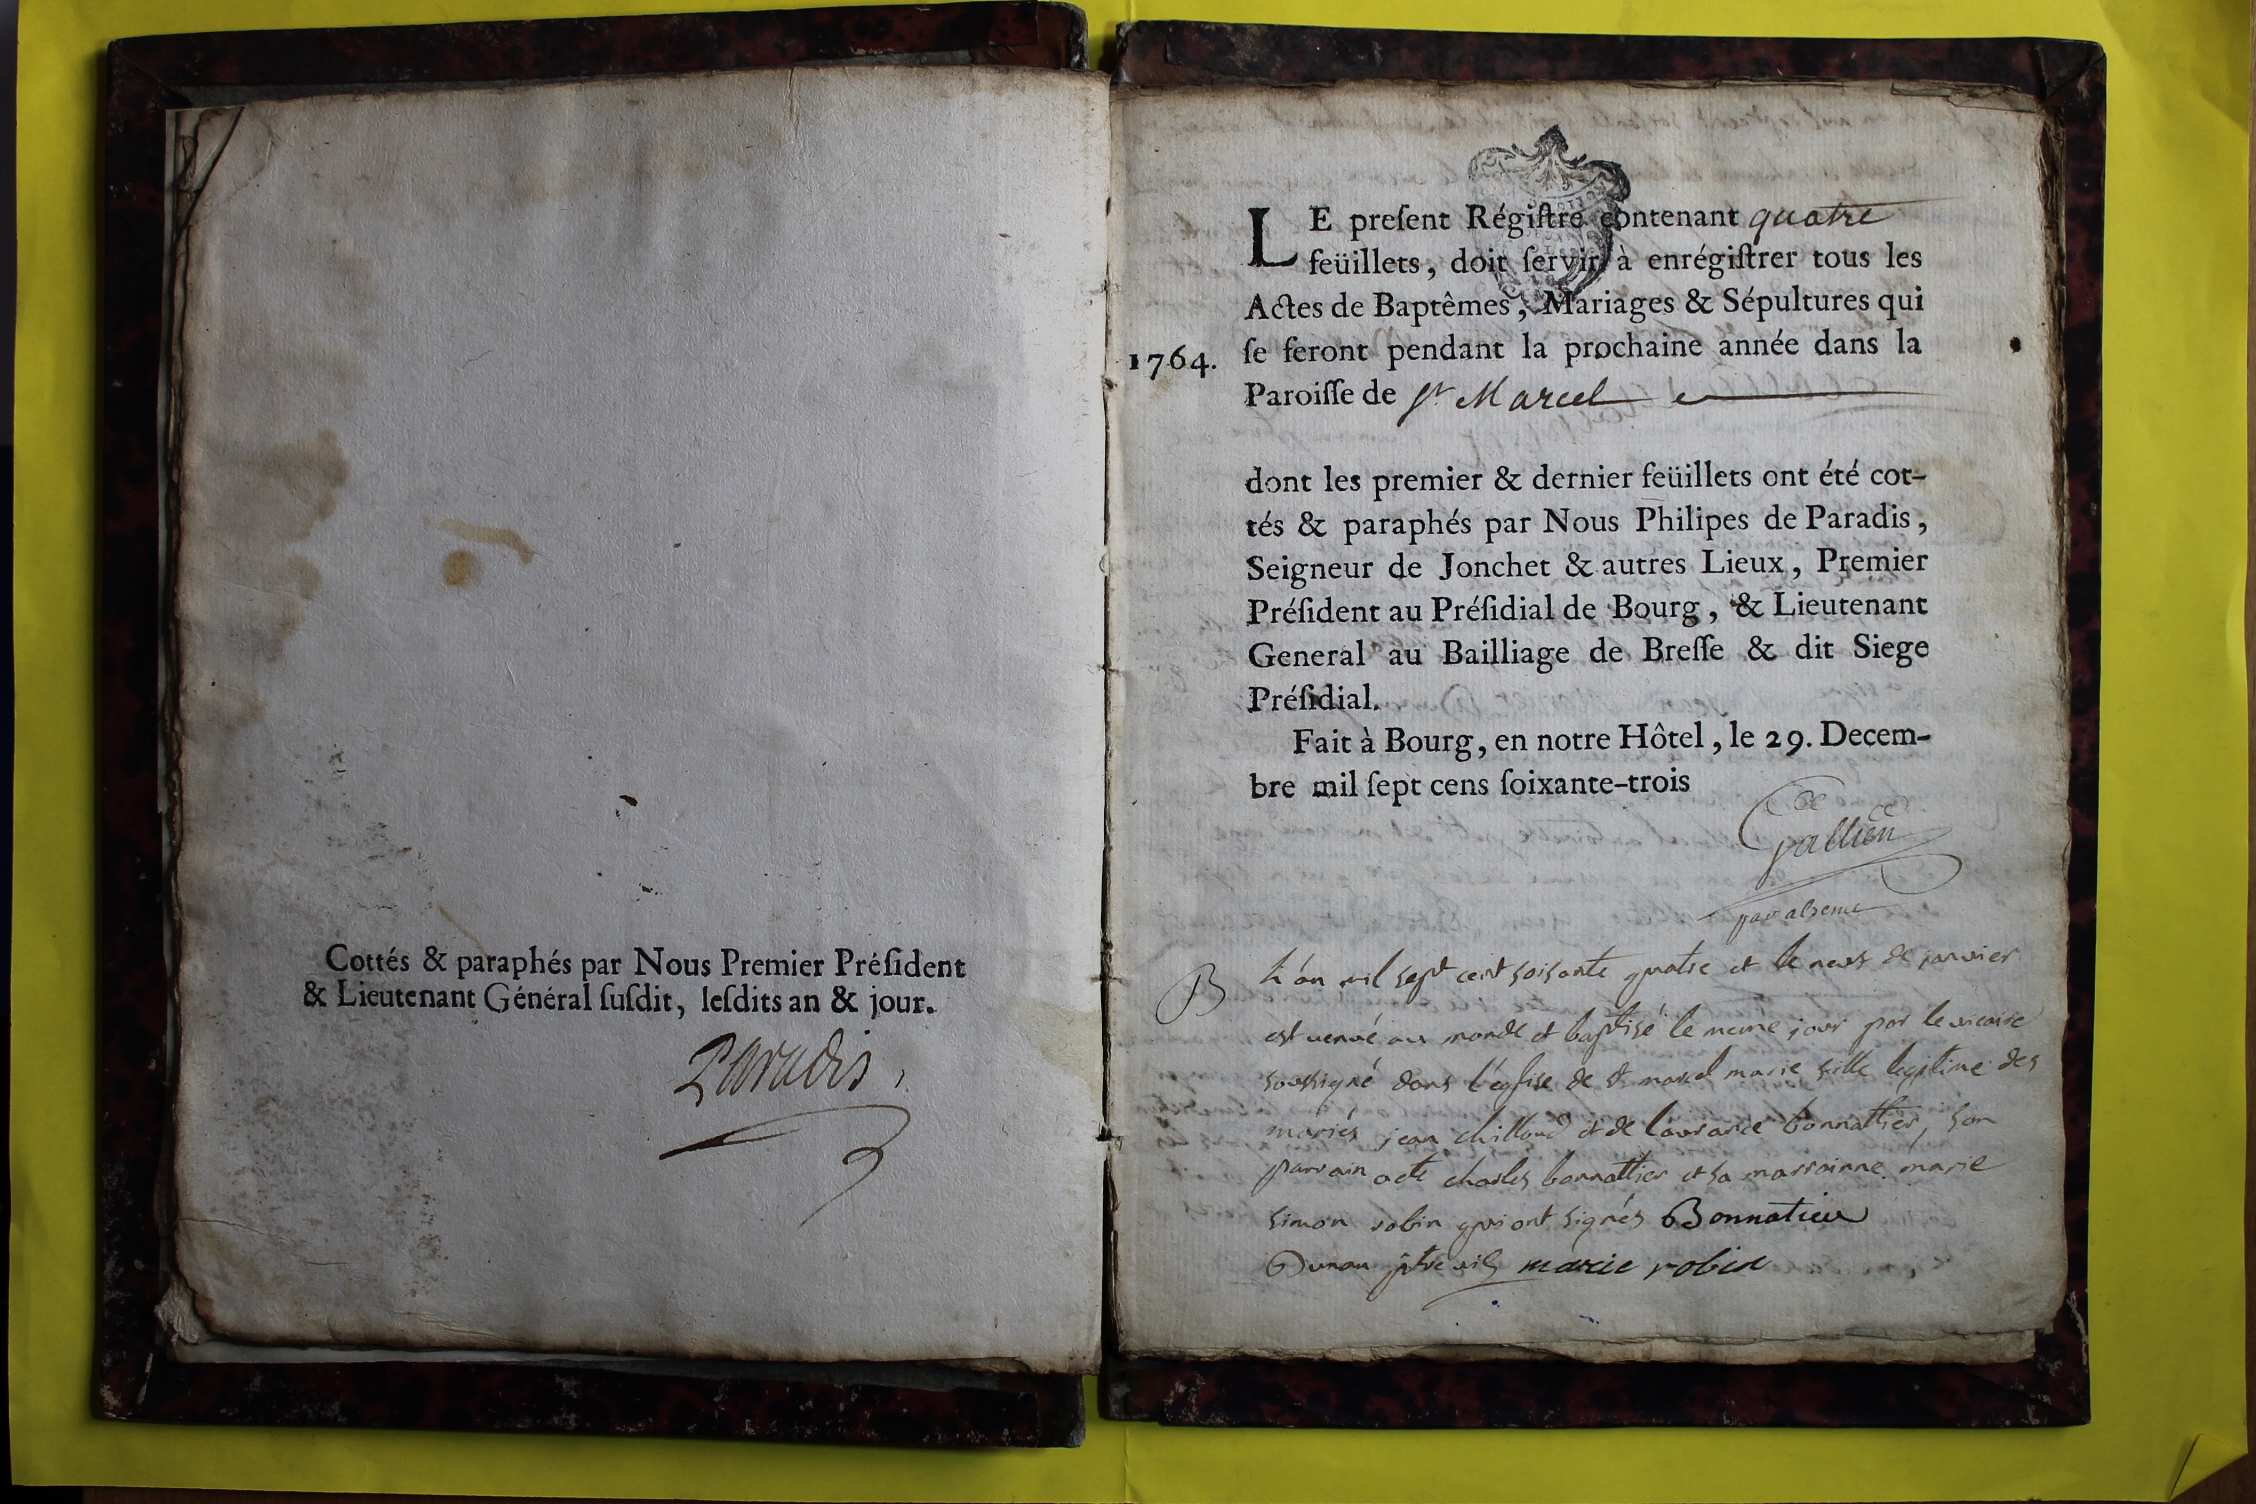 Cottés & paraphés par Nous Premier Préſident
& Lieutenant Général ſuſdit, leſdits an & jour.
Paradis
LE preſent Régiſtre contenant quatre
feüillets, doit ſervir à enrégiſtrer tous les
Actes de Baptêmes, Mariages & Sépultures qui
1764. ſe feront pendant la prochaine année dans la
Paroiſſe de St Marcel
dont les premier & dernier feüillets ont été cot-
tés & paraphés par Nous Philipes de Paradis,
Seigneur de Jonchet & autres Lieux, Premier
Préſident au Préſidial de Bourg, & Lieutenant
General au Bailliage de Breſſe & dit Siege
Préſidial.
Fait à Bourg, en notre Hôtel, le 29. Decem-
bre mil ſept cens ſoixante-trois
B L'an mil sept cent soisante quatre et le neuf de janvier
est venue au monde et baptisé le meme jour par le vicaire
soussigné dans l'église de st marcel marie fille legitime des
mariés jean chilloud et de laurance bonnattier, son
parrain acté charles bonnattier et sa marrainne marie
simon robin qui ont signés Bonnatier
Dunan ptre vic marie robin